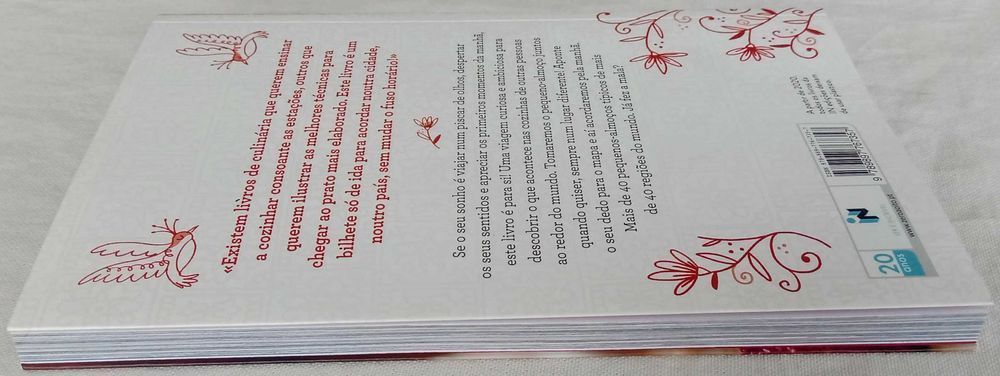 «Existem livros de culinária que querem ensinar
a cozinhar consoante as estações, outros que
querem ilustrar as melhores técnicas para
chegar ao prato mais elaborado. Este livro é um
bilhete só de ida para acordar noutra cidade,
noutro país, sem mudar o fuso horário!»
Se o seu sonho é viajar num piscar de olhos, despertar
os seus sentidos e apreciar os primeiros momentos da manhã,
este livro é para si! Uma viagem curiosa e ambiciosa para
descobrir o que acontece nas cozinhas de outras pessoas
ao redor do mundo. Tomaremos o pequeno-almoço juntos
quando quiser, sempre num lugar diferente! Aponte
o seu dedo para o mapa e aí acordaremos pela manhã.
Mais de 40 pequenos-almoços típicos de mais
de 40 regiões do mundo. Já fez a mala?
20
anos
IN
A partir de 2020,